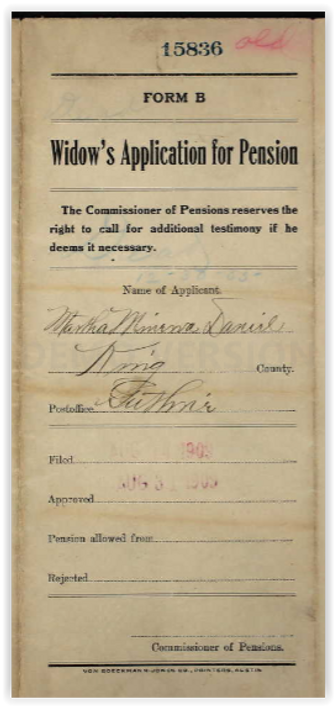 15836 old
FORM B
Widow's Application for Pension
The Commissioner of Pensions reserves the
right to call for additional testimony if he
deems it necessary.
Name of Applicant.
Martha Minerva Daniel
King County.
Postoffice Guthrie
Filed 1909
Approved AUG 31 1909
Pension allowed from
Rejected
Commissioner of Pensions.
VON BOECKMANN-JONES CO., PRINTERS, AUSTIN